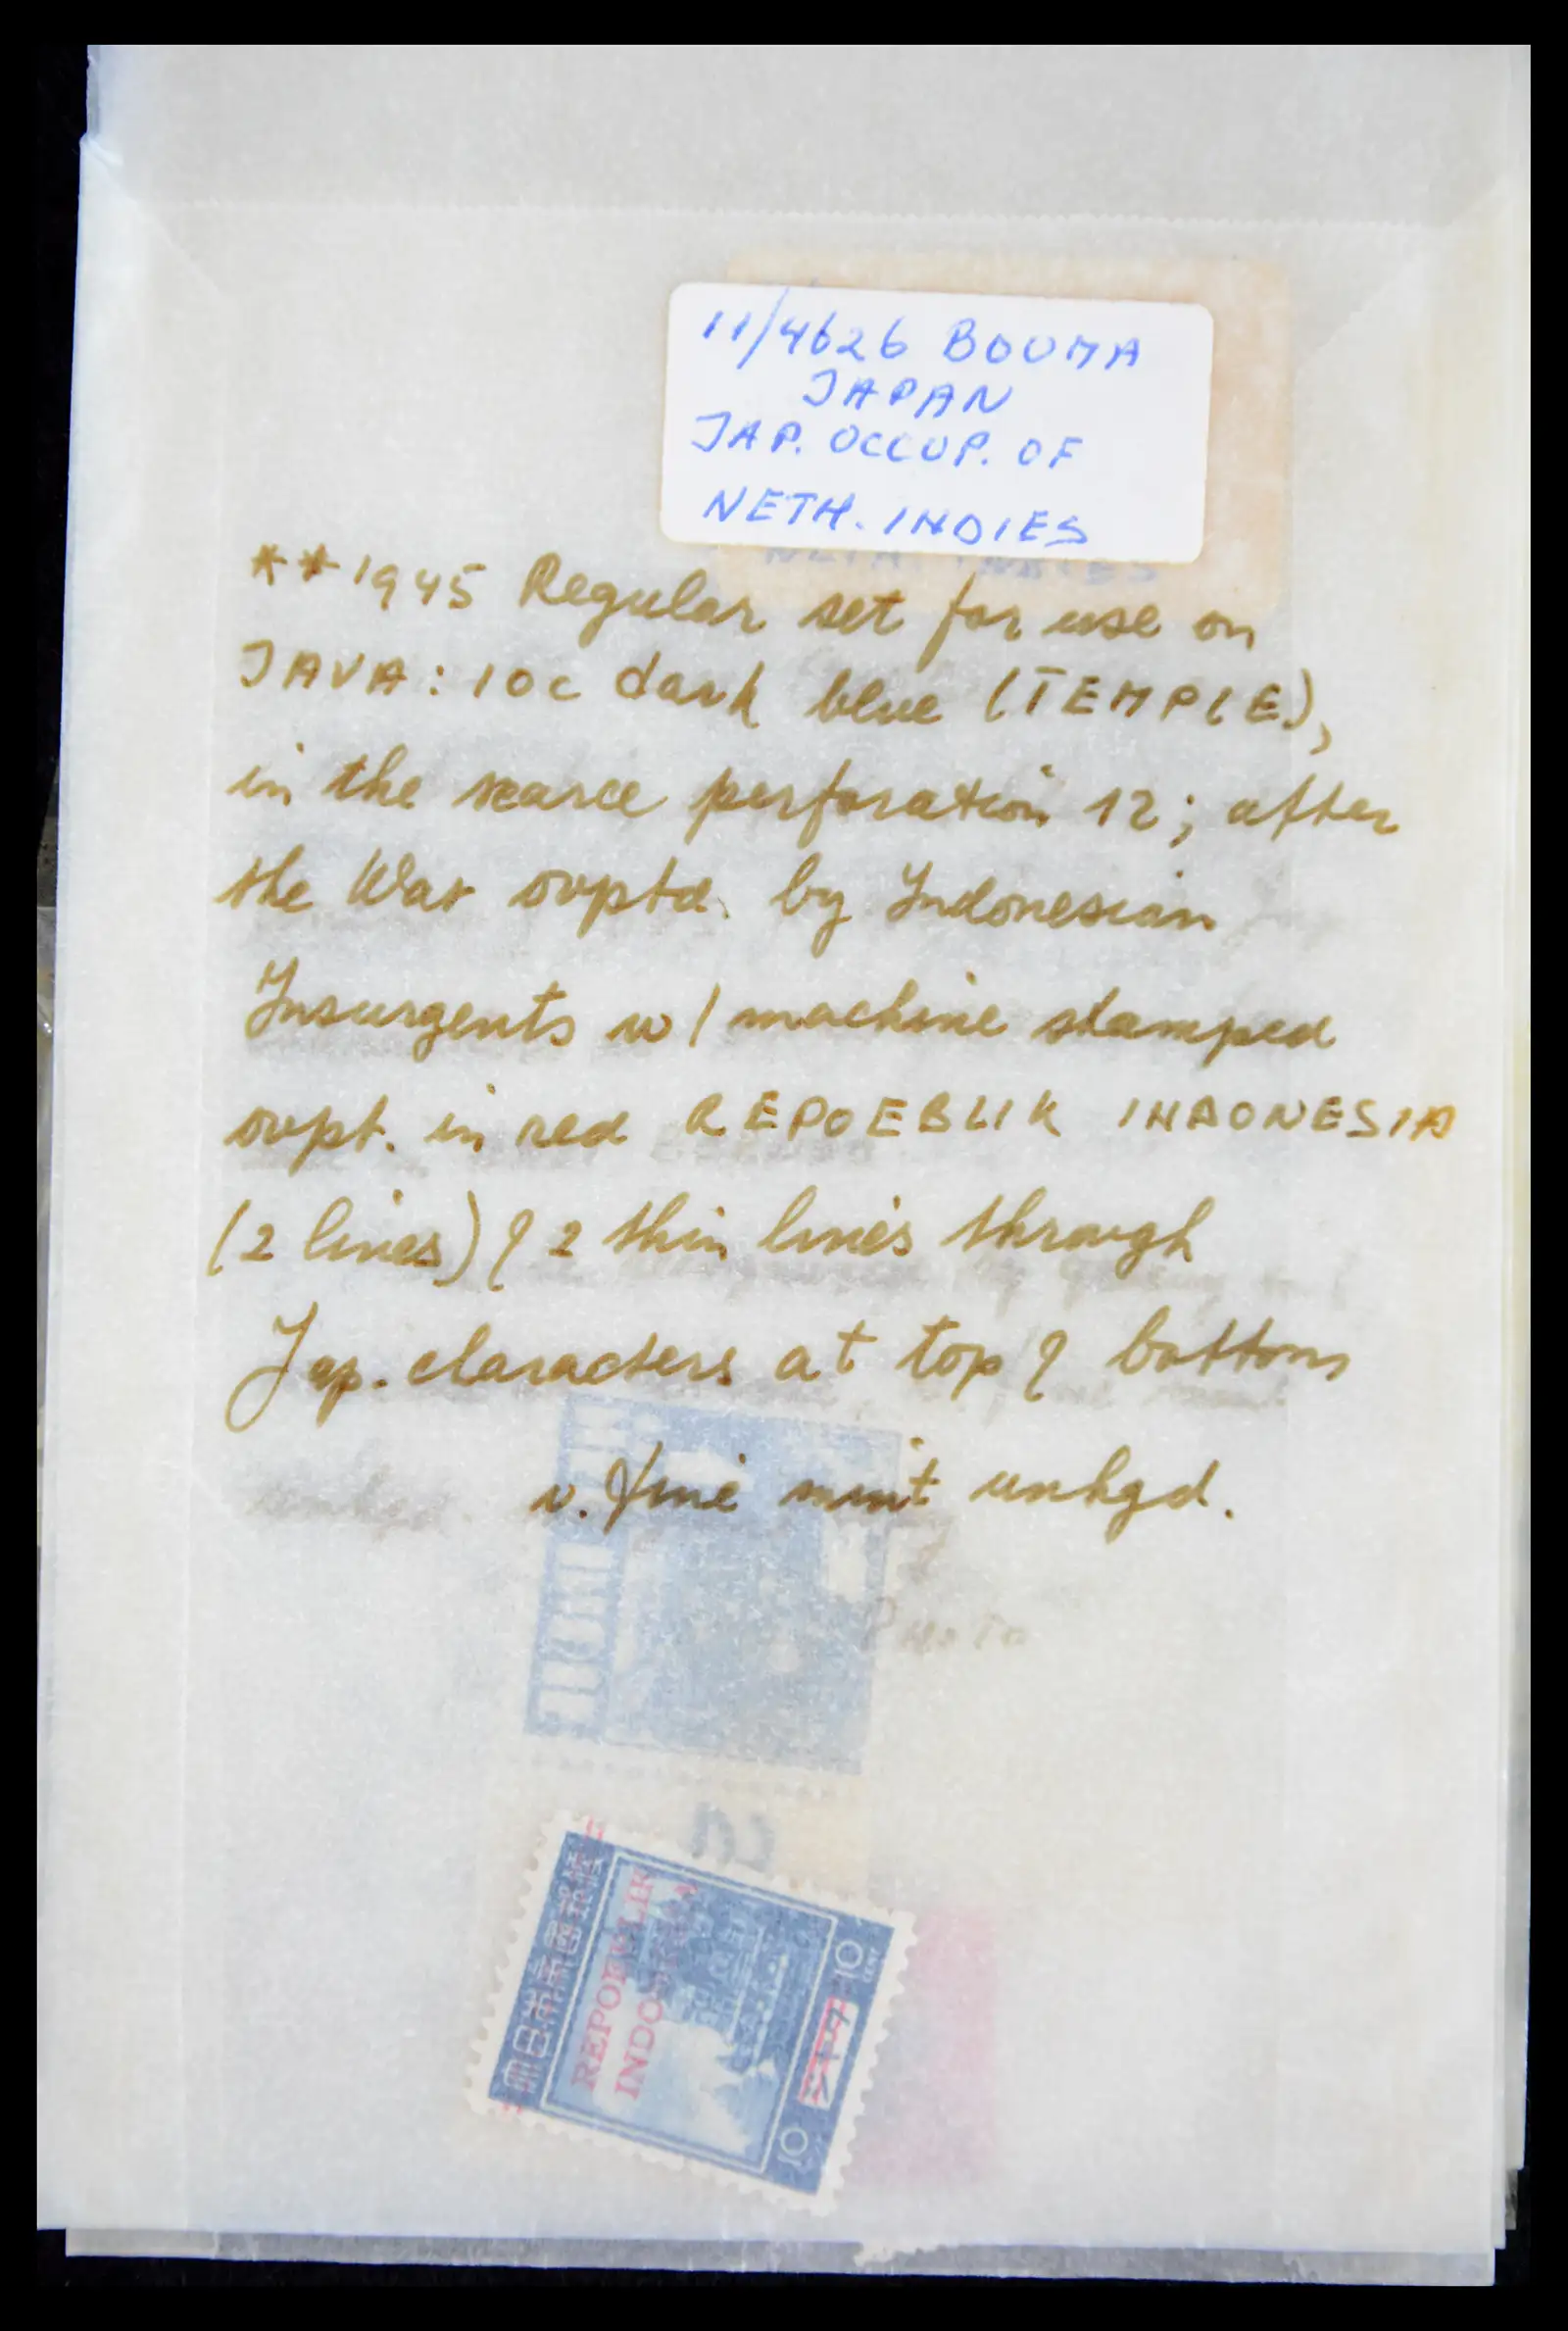 11/4626 BOUMA
JAPAN
JAP. OCCUP. OF
NETH. INDIES
**1945 Regular set for use on
JAVA: 10c dark blue (TEMPLE),
in the scarce perforation 12; after
the War ovptd. by Indonesian
Insurgents w/ machine stamped
ovpt. in red REPOEBLIK INDONESIA
(2 lines) & 2 thin lines through
Jap. characters at top & bottom
v. fine mint unhgd.
REPOEBLIK
INDONESIA
10
CENT
10